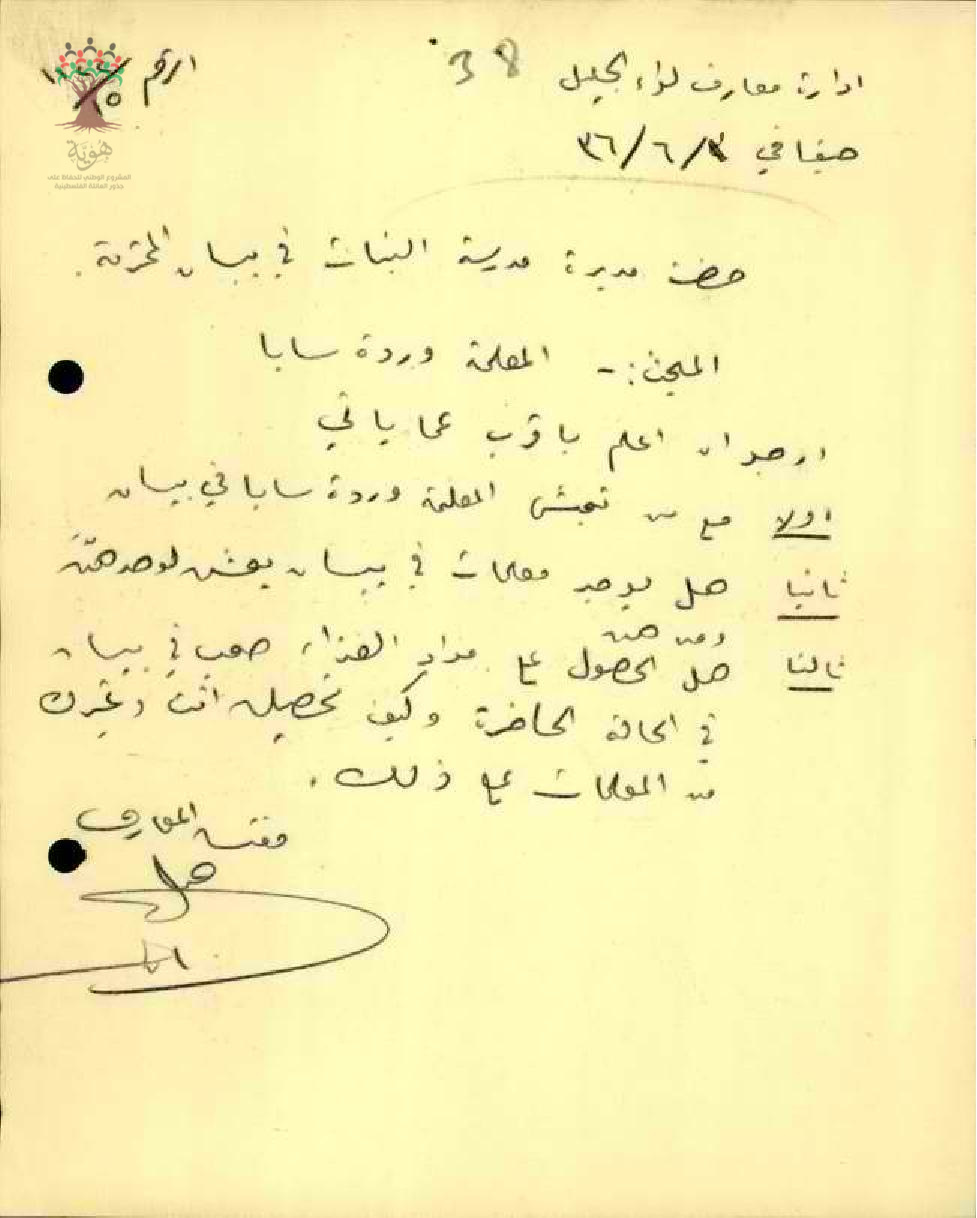 ادارة معارف لواء الجليل 38 الرقم
حيفا في ٣٦/٦/٣
هوية
المشروع الوطني للحفاظ على
جذور العائلة الفلسطينية
حضرة مديرة مدرسة البنات في بيسان المحترمة.
المبحث:- المعلمة وردة سابا
ارجو ان اعلم باقرب ما ياتي
اولا مع من تعيش المعلمة وردة سابا في بيسان
ثانيا هل يوجد معلمات في بيسان يعشن لوحدهنّ
ومن هن
ثالثا هل الحصول على مواد الغذاء صعب في بيسان
في الحالة الحاضرة وكيف تحصلين انت وغيرك
من المعلمات على ذلك.
مفتش المعارف